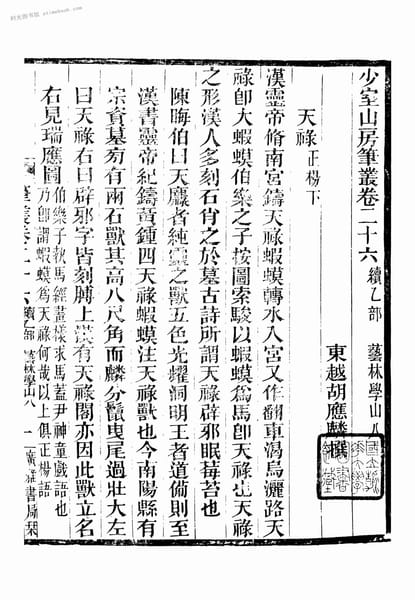 时光图书馆 stimebook.com
少室山房筆叢卷二十六 續乙部 藝林學山八
東越胡應麟撰
天祿 正楊下
漢靈帝脩南宮鑄天祿蝦蟆轉水入宮又作翻車渴烏灑路天
祿卽大蝦蟆伯樂之子按圖索駿以蝦蟆爲馬卽天祿也天祿
之形漢人多刻石肖之於墓古詩所謂天祿辟邪眠莓苔也
陳晦伯曰天麤者純靈之獸五色光耀洞明王者道備則至
漢書靈帝紀鑄黃鍾四天祿蝦蟆注天祿獸也今南陽縣有
宗資墓旁有兩石獸其高八尺角而麟分鬣曳尾過壯大左
曰天祿右曰辟邪字皆刻膊上漢有天祿閣亦因此獸立名
右見瑞應圖 伯樂子執馬經畫樣求馬蓋尹神童戲語也
乃卽謂蝦蟆爲天祿何哉以上俱正楊語
筆叢卷二十六 續乙部 藝林學山八 一 廣雅書局栞